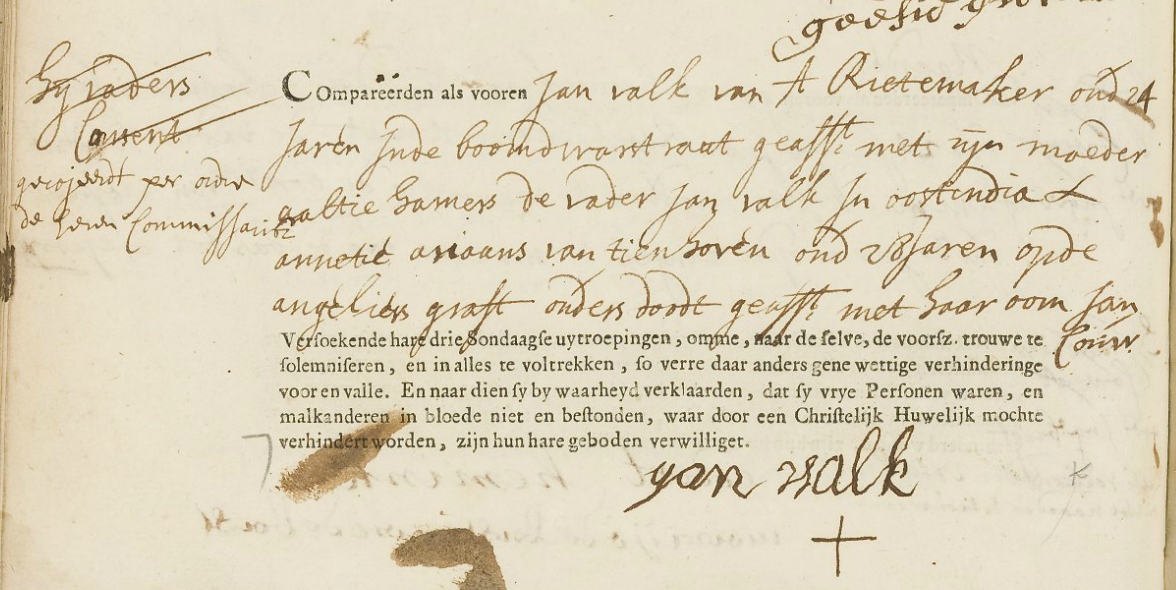 hij vaders
Consent
geroijeerdt per ordre
de heren Commissaris
Compareerden als vooren Jan valk van A Rietemaker oud 24
Jaren Inde boomdwarstraat geasst met zijn moeder
aaltie hamers de vader Jan valk In oostindia &
annetie ariaans van tienhoven oud 28 Jaren opde
angeliers graft ouders doodt geasst met haar oom Jan
Couw.
Versoekende hare drie Sondaagse uytroepingen, omme, naar de selve, de voorsz. trouwe te
solemniseren, en in alles te voltrekken, so verre daar anders gene wettige verhinderinge
voor en valle. En naar dien sy by waarheyd verklaarden, dat sy vrye Personen waren, en
malkanderen in bloede niet en bestonden, waar door een Christelijk Huwelijk mochte
verhindert worden, zijn hun hare geboden verwilliget.
yan valk